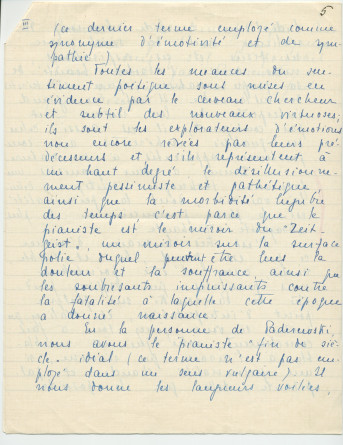 5
III
(ce dernier terme employé comme
synonyme d'émotivité et de sym-
pathie).
Toutes les nuances du sen-
timent poétique sous mises en
évidence par le cerveau chercheur
et subtil des nouveaux virtuoses;
ils sont les explorateurs d'émotions
non encore rêvées par leurs pré-
décesseurs et s'ils représentent à
un haut degré le désillusionne-
ment pessimiste et pathétique,
ainsi que la morbidité lugubre
des temps, c'est parce que le
pianiste est le miroir du "Zeit-
geist", un miroir sur la surface
polie duquel peuvent être lues la
douleur et la souffrance ainsi que
les soubresauts impuissants contre
la fatalité à laquelle cette époque
a donné naissance.
En la personne de Paderewski,
nous avons le pianiste fin de siè-
cle idéal (ce terme n'est pas em-
ployé dans un sens vulgaire). Il
nous donne les langueurs voilées,